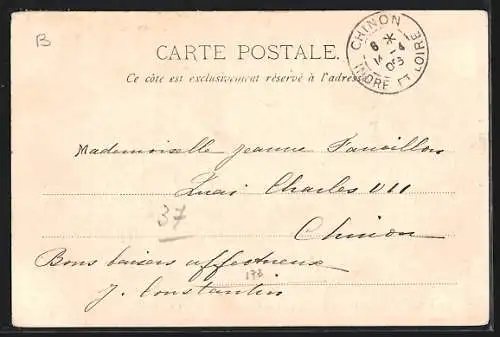 B
CARTE POSTALE.
Ce côté est exclusivement réservé à l'adresse
CHINON
6 *
14 - 4
03
INDRE ET LOIRE
Mademoiselle Jeanne
Quai Charles VII
37
Chinon
Bons baisers affectueux
178
J. Constantin